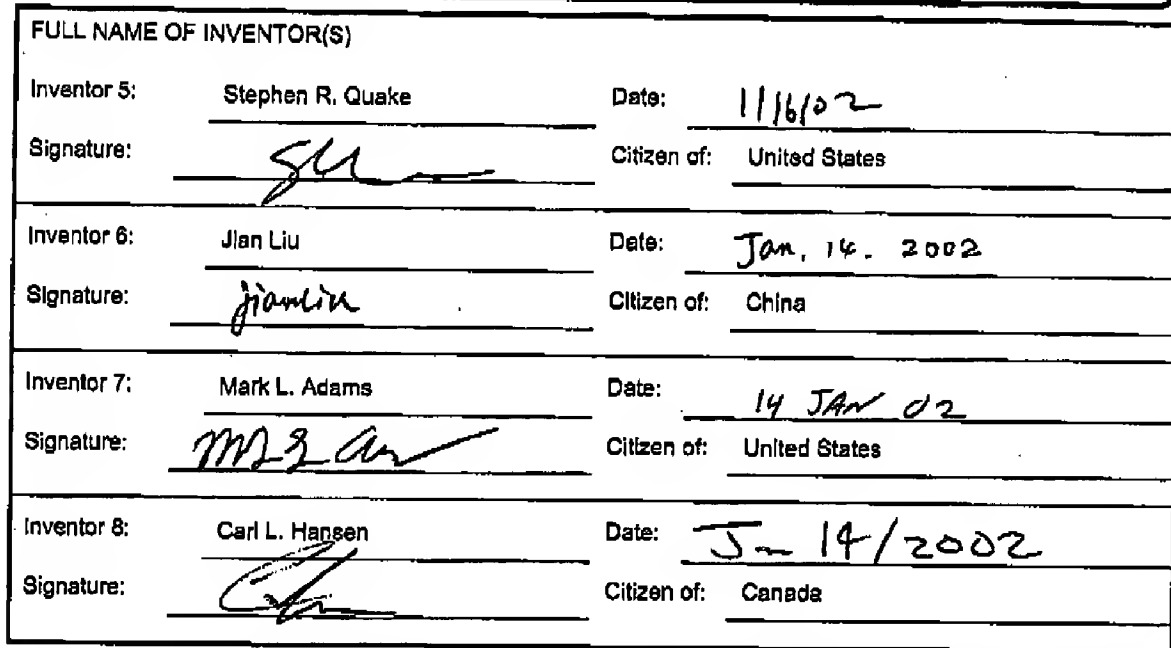 FULL NAME OF INVENTOR(S)
Inventor 5: Stephen R. Quake Date: 1/16/02
Signature: Citizen of: United States
Inventor 6: Jian Liu Date: Jan. 14. 2002
Signature: jianliu Citizen of: China
Inventor 7: Mark L. Adams Date: 14 JAN 02
Signature: Citizen of: United States
Inventor 8: Carl L. Hansen Date: Jan 14/2002
Signature: Citizen of: Canada